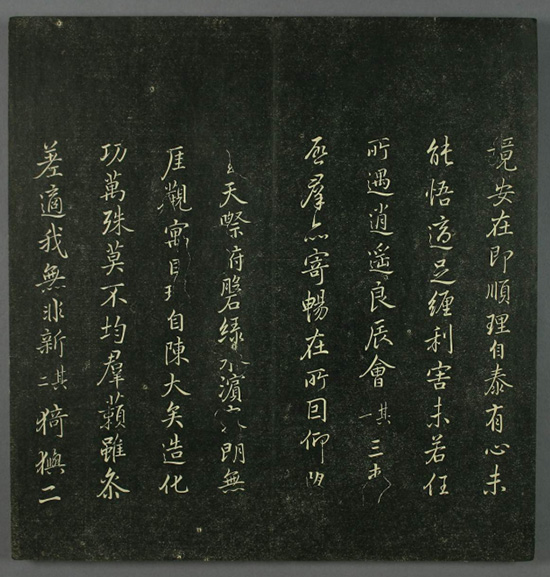 境安在即順理自泰有心未
能悟適足纏利害未若任
所遇逍遙良辰會其一三春
啟羣品寄暢在所因仰
天際俯磐綠水濱寥朗無
厓觀寓目理自陳大矣造化
功萬殊莫不均羣藾雖參
差適我無非新其二猗㺞二